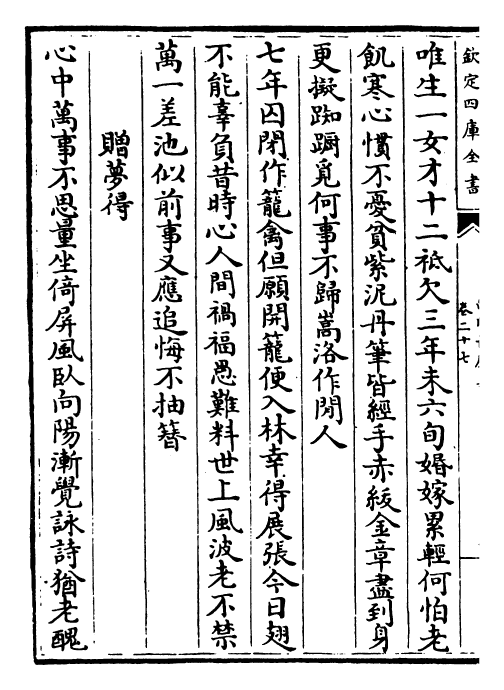 欽定四庫全書
卷二十七
唯生一女才十二祗欠三年未六旬婚嫁累輕何怕老
飢寒心慣不憂貧紫泥丹筆皆經手赤紱金章盡到身
更擬踟蹰覓何事不歸嵩洛作閒人
七年囚閉作籠禽但願開籠便入林幸得展張今日翅
不能辜負昔時心人間禍福愚難料世上風波老不禁
萬一差池似前事又應追悔不抽簪
贈夢得
心中萬事不思量坐倚屏風臥向陽漸覺詠詩猶老醜